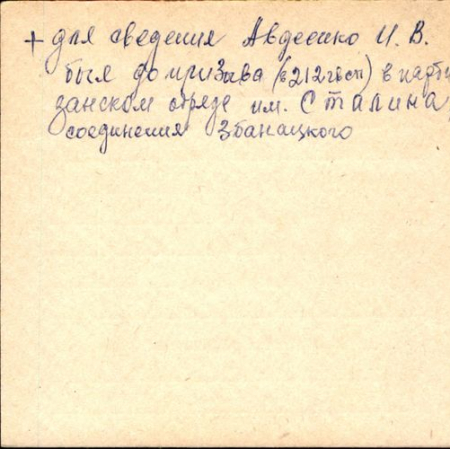 + для сведения Авдеенко И. В.
был до призыва (в 212 гвсп) в парти
занском отряде им. Сталина,
соединения Збанацкого